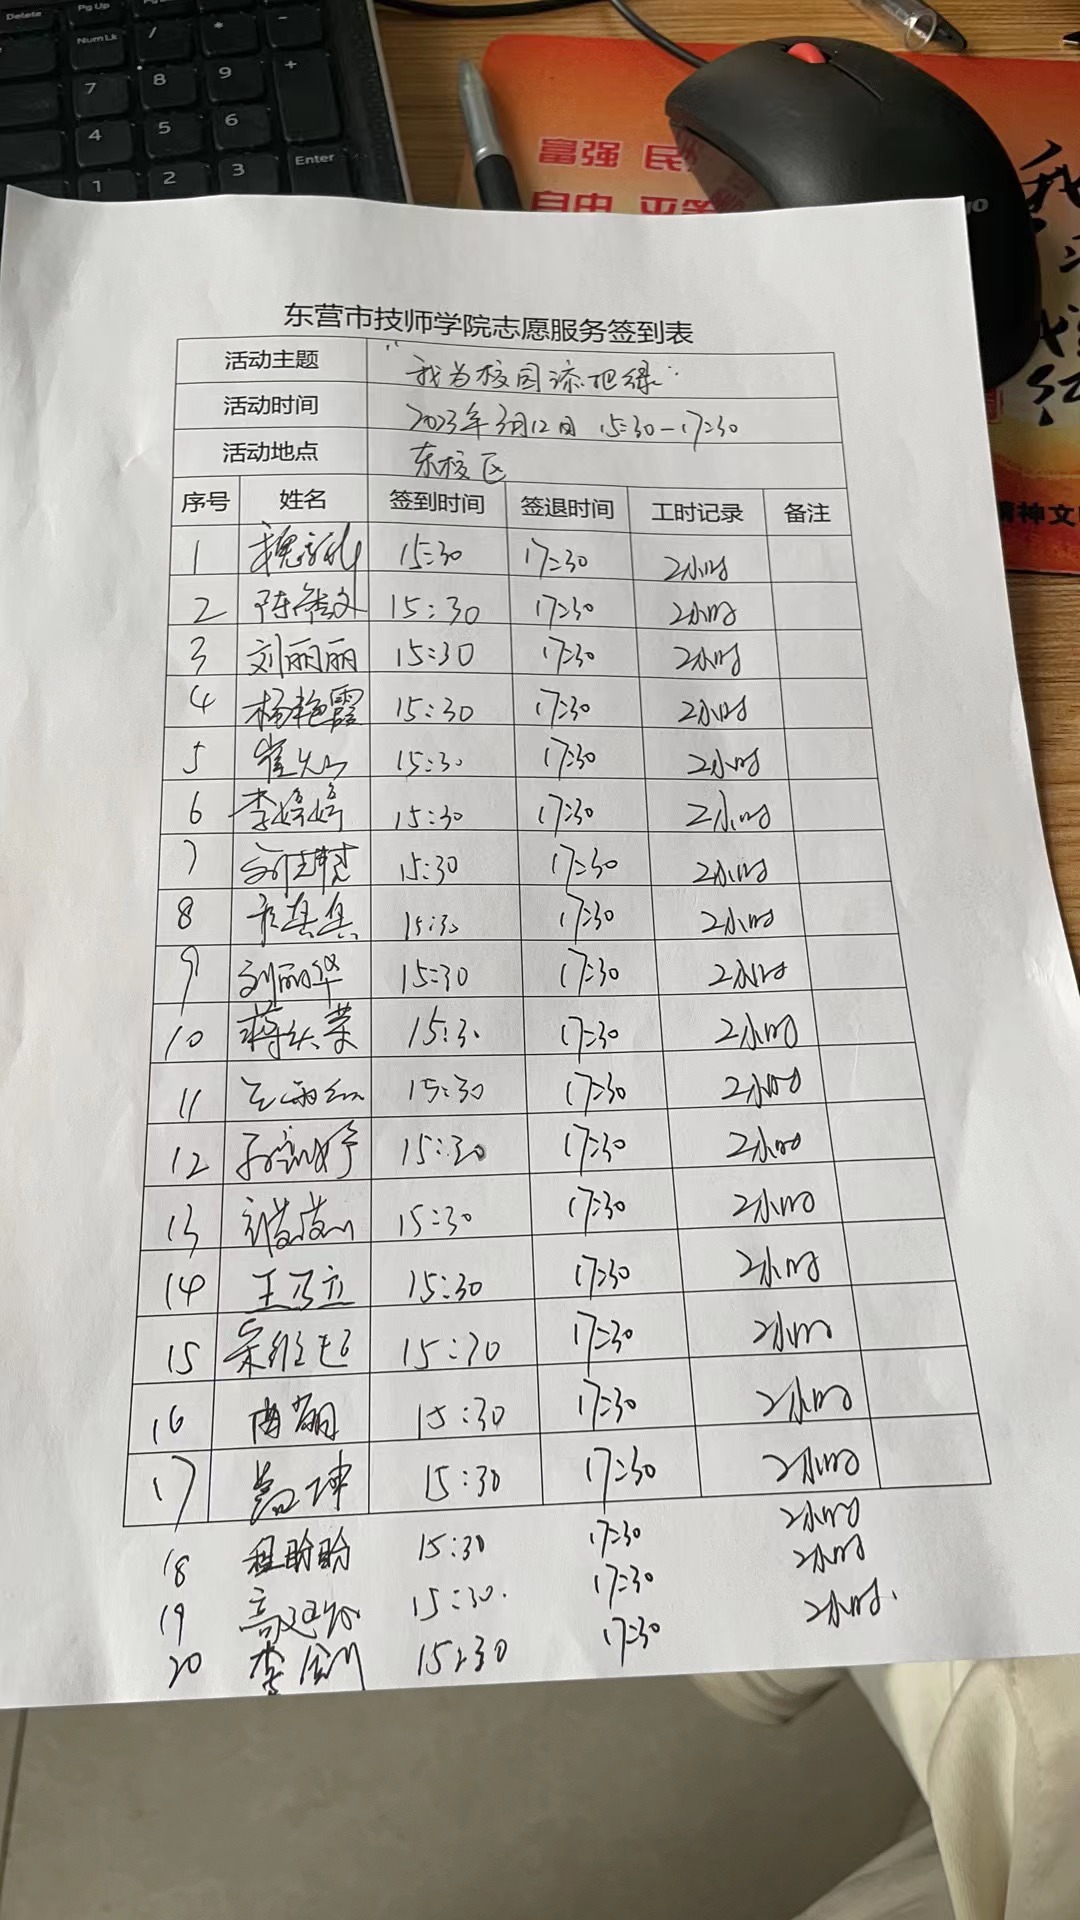 Delete
Pg Up
Pg Dn
Num Lk / * -
7 8 9 +
4 5 6
1 2 3 Enter
富强 民
自由 平等
神文
东营市技师学院志愿服务签到表
活动主题 "我为校园添把绿"
活动时间 2023年3月12日 15:30-17:30
活动地点 东校区
序号 姓名 签到时间 签退时间 工时记录 备注
1 15:30 17:30 2小时
2 陈 文 15:30 17:30 2小时
3 刘丽丽 15:30 17:30 2小时
4 杨艳霞 15:30 17:30 2小时
5 崔 15:30 17:30 2小时
6 李婷婷 15:30 17:30 2小时
7 15:30 17:30 2小时
8 15:30 17:30 2小时
9 刘丽华 15:30 17:30 2小时
10 蒋 荣 15:30 17:30 2小时
11 15:30 17:30 2小时
12 孙 婷 15:30 17:30 2小时
13 15:30 17:30 2小时
14 王乃立 15:30 17:30 2小时
15 15:30 17:30 2小时
16 曲 15:30 17:30 2小时
17 坤 15:30 17:30 2小时
18 程盼盼 15:30 17:30 2小时
19 高 15:30. 17:30 2小时
20 李 15:30 17:30 2小时.